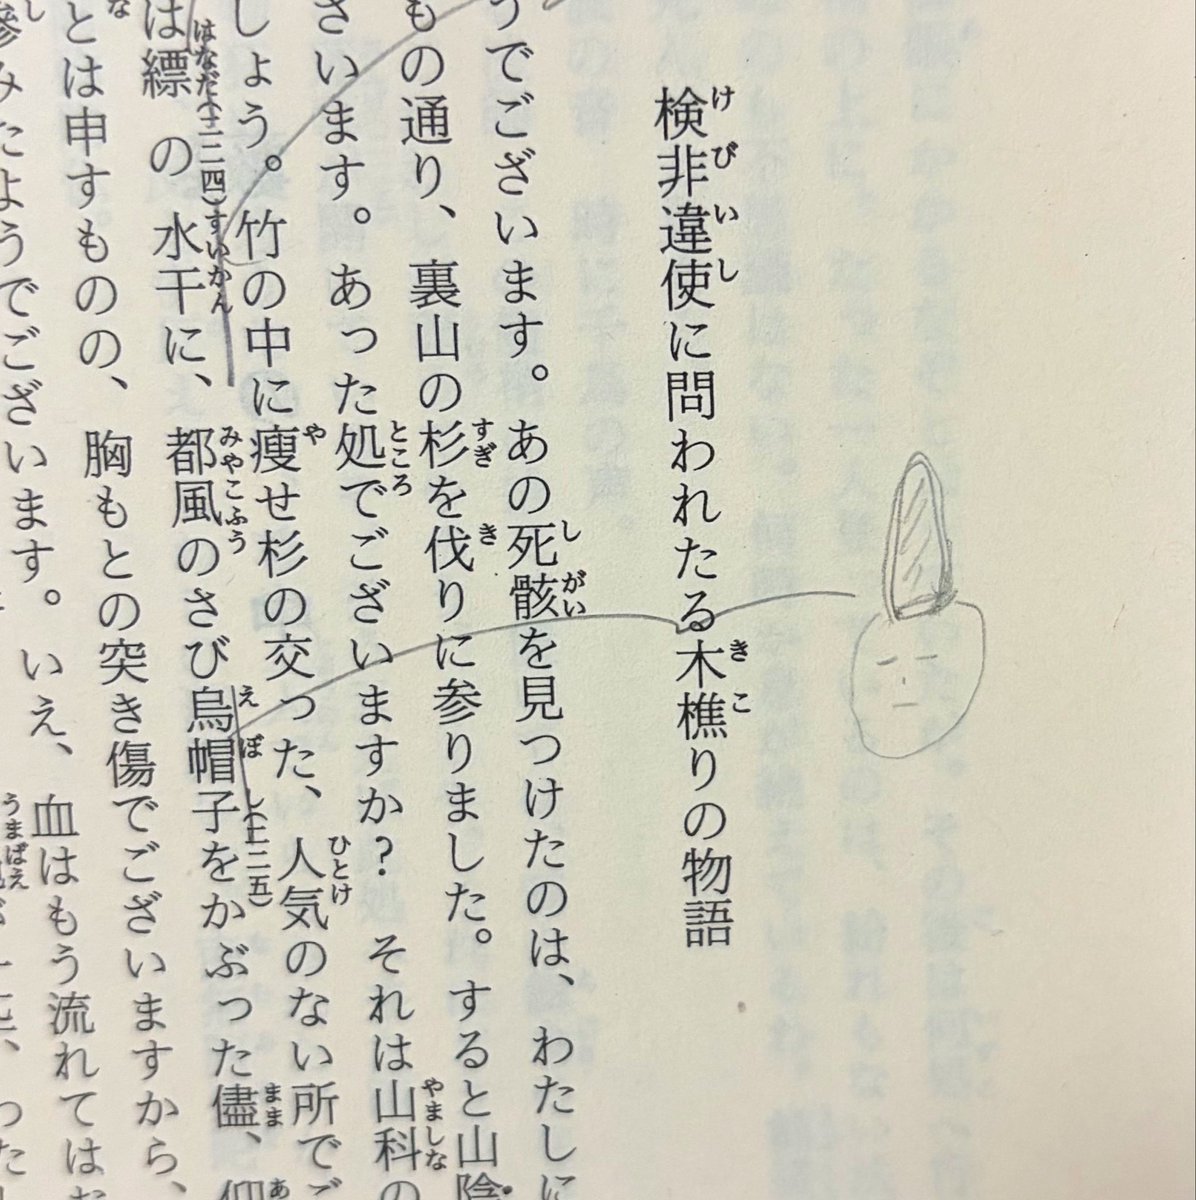 検非違使に問われたる木樵りの物語
うでございます。あの死骸を見つけたのは、わたしに
もの通り、裏山の杉を伐りに参りました。すると山陰
さいます。あった処でございますか? それは山科の
しょう。竹の中に痩せ杉の交った、人気のない所でご
は縹の水干に、都風のさび烏帽子をかぶった儘、仰
とは申すものの、胸もとの突き傷でございますから、
みたようでございます。いえ、血はもう流れてはお